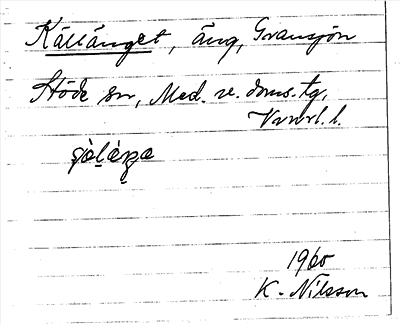 Källänget, äng, Gransjön
Stöde sn, Med. v. doms. tg.
Vnrl. l.
1960
K. Nilsson